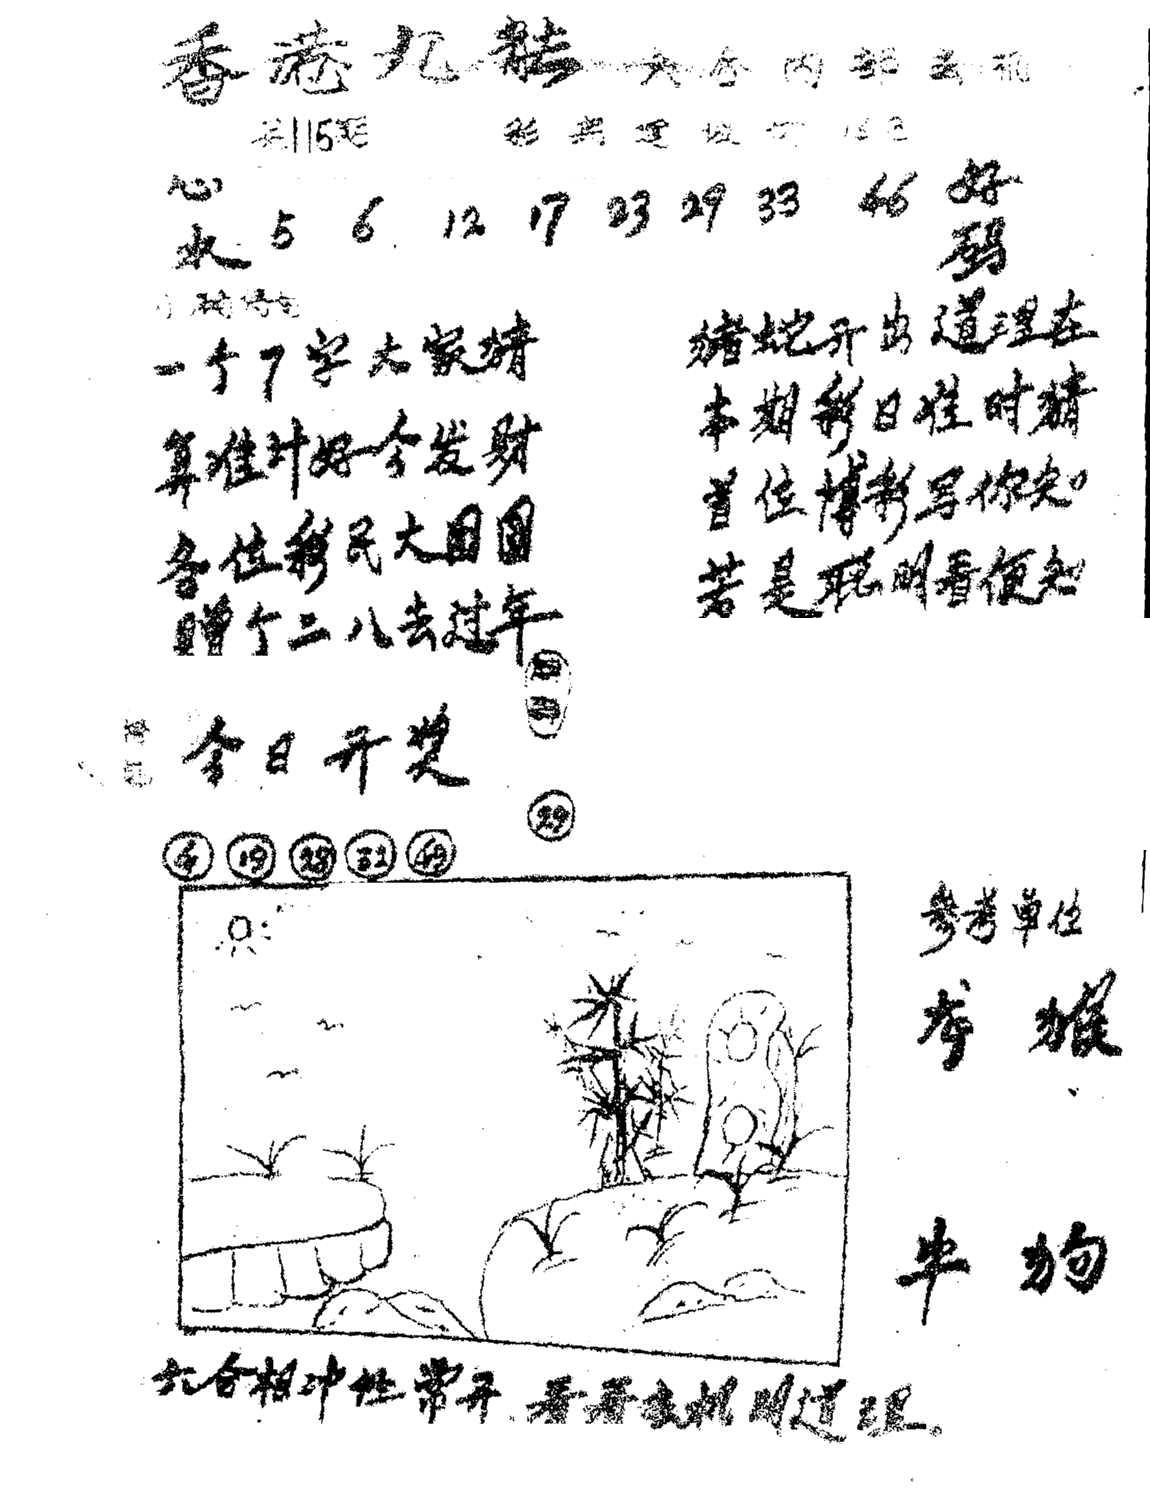 香港九龙 六合内部玄机
第115期
心水 5 6 12 17 23 29 33 46 好码
一个7字大家猜
算准计好今发财
各位彩民大团圆
赠个二八去过年
猪蛇开出道理在
本期彩日准时猜
首位博彩写你知
若是聪明看便知
今日开奖
29
4 19 28 32 49
参考单位
羊 猴
牛 狗
六合相冲性常开 看看玄机明道理。